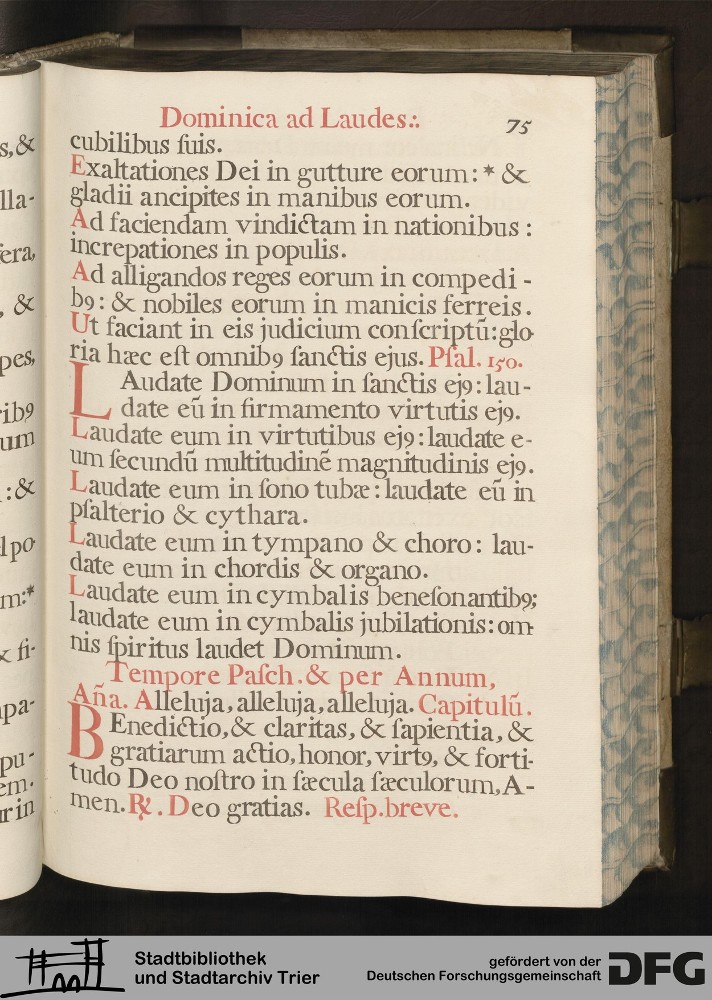 Dominica ad Laudes:.
75
cubilibus ſuis.
Exaltationes Dei in gutture eorum: * &
gladii ancipites in manibus eorum.
Ad faciendam vindictam in nationibus :
increpationes in populis.
Ad alligandos reges eorum in compedi -
bꝯ: & nobiles eorum in manicis ferreis.
Ut faciant in eis judicium conſcriptū: glo
ria hæc eſt omnibꝯ ſanctis ejus. Pſal. 150.
LAudate Dominum in ſanctis ejꝯ: lau-
date eū in firmamento virtutis ejꝯ.
Laudate eum in virtutibus ejꝯ: laudate e-
um ſecundū multitudinē magnitudinis ejꝯ.
Laudate eum in ſono tubæ: laudate eū in
pſalterio & cythara.
Laudate eum in tympano & choro: lau-
date eum in chordis & organo.
Laudate eum in cymbalis beneſonantibꝯ;
laudate eum in cymbalis jubilationis: om-
nis ſpiritus laudet Dominum.
Tempore Paſch. & per Annum,
Aña. Alleluja, alleluja, alleluja. Capitulū.
BEnedictio, & claritas, & ſapientia, &
gratiarum actio, honor, virtꝯ, & forti-
tudo Deo noſtro in ſæcula ſæculorum, A-
men. ℟. Deo gratias. Reſp. breve.
s, &
lla-
era,
, &
pes,
ribꝯ
um
: &
po
m:*
& fi-
pa-
pu-
em.
ur in
Stadtbibliothek
und Stadtarchiv Trier
gefördert von der
Deutschen Forschungsgemeinschaft
DFG